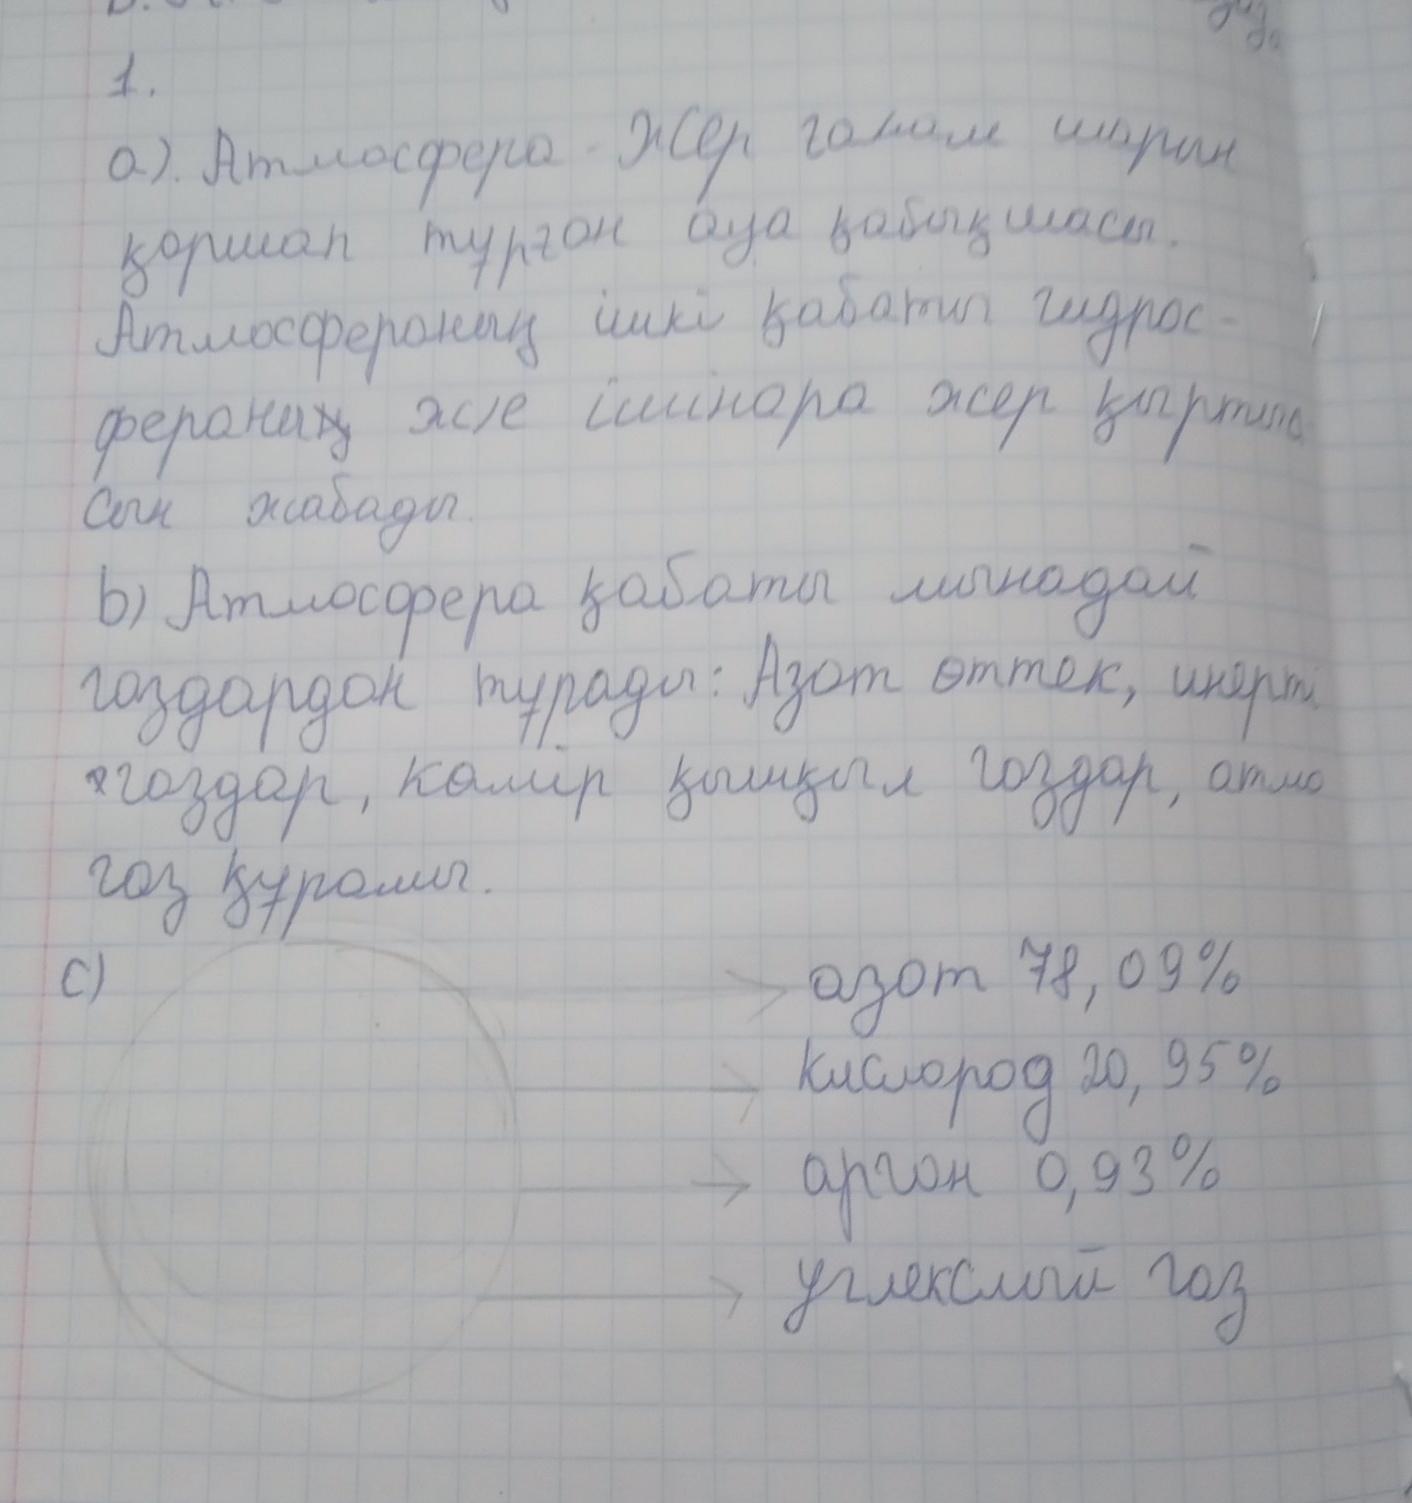 1.
a). Атмосфера - Жер ғалам шарын
қоршап тұрған ауа қабықшасы.
Атмосфераның ішкі қабаты гидрос-
фераның және ішінара жер қыртыс
сын жабады.
b) Атмосфера қабаты мынадай
газдардан тұрады: Азот оттек, инертi
газдар, көмір қышқыл газдар, атмо
газ құрамы.
c)
азот 78,09%
кислород 20,95%
аргон 0,93%
углекслый газ